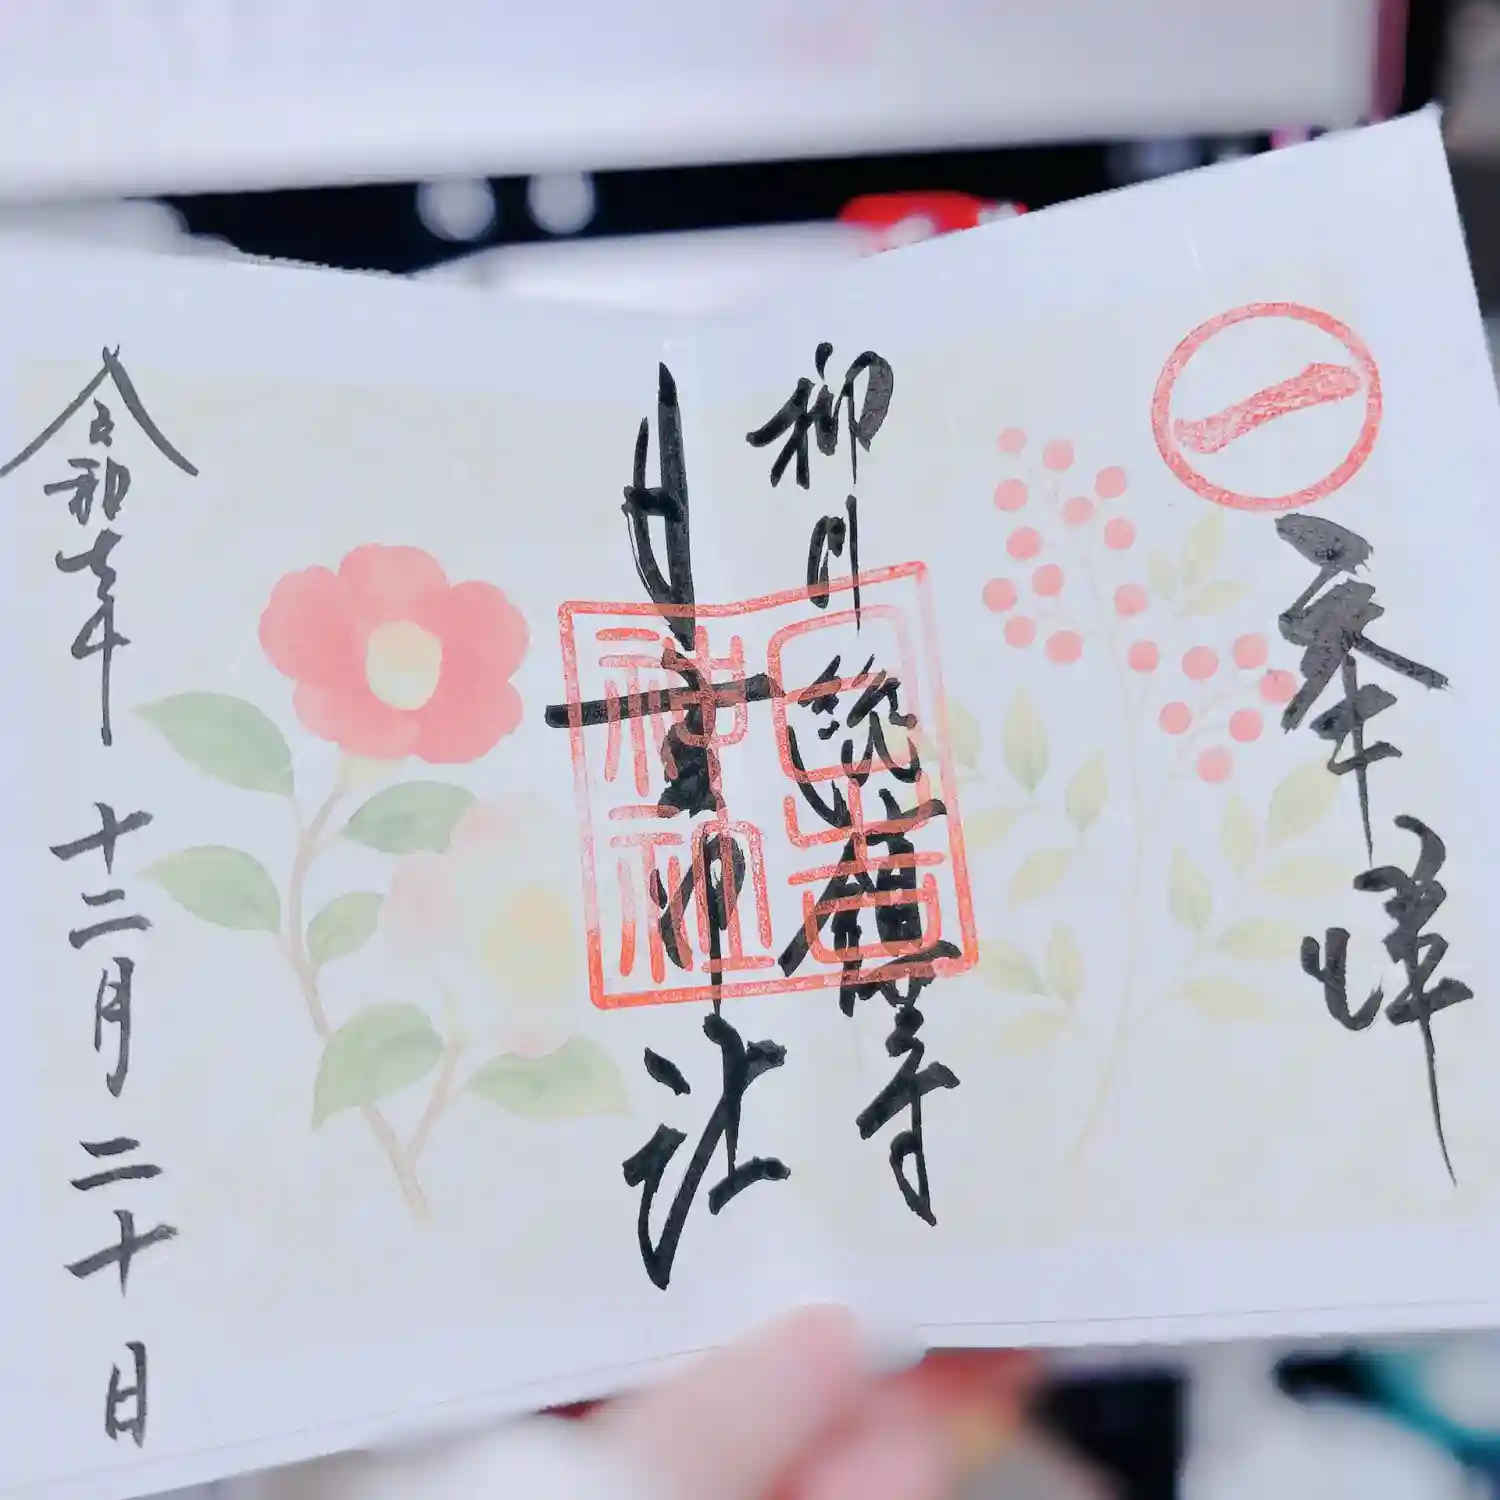 一
奉拝
柳川総鎮守
日吉神社
日吉神社
令和七年 十二月 二十日